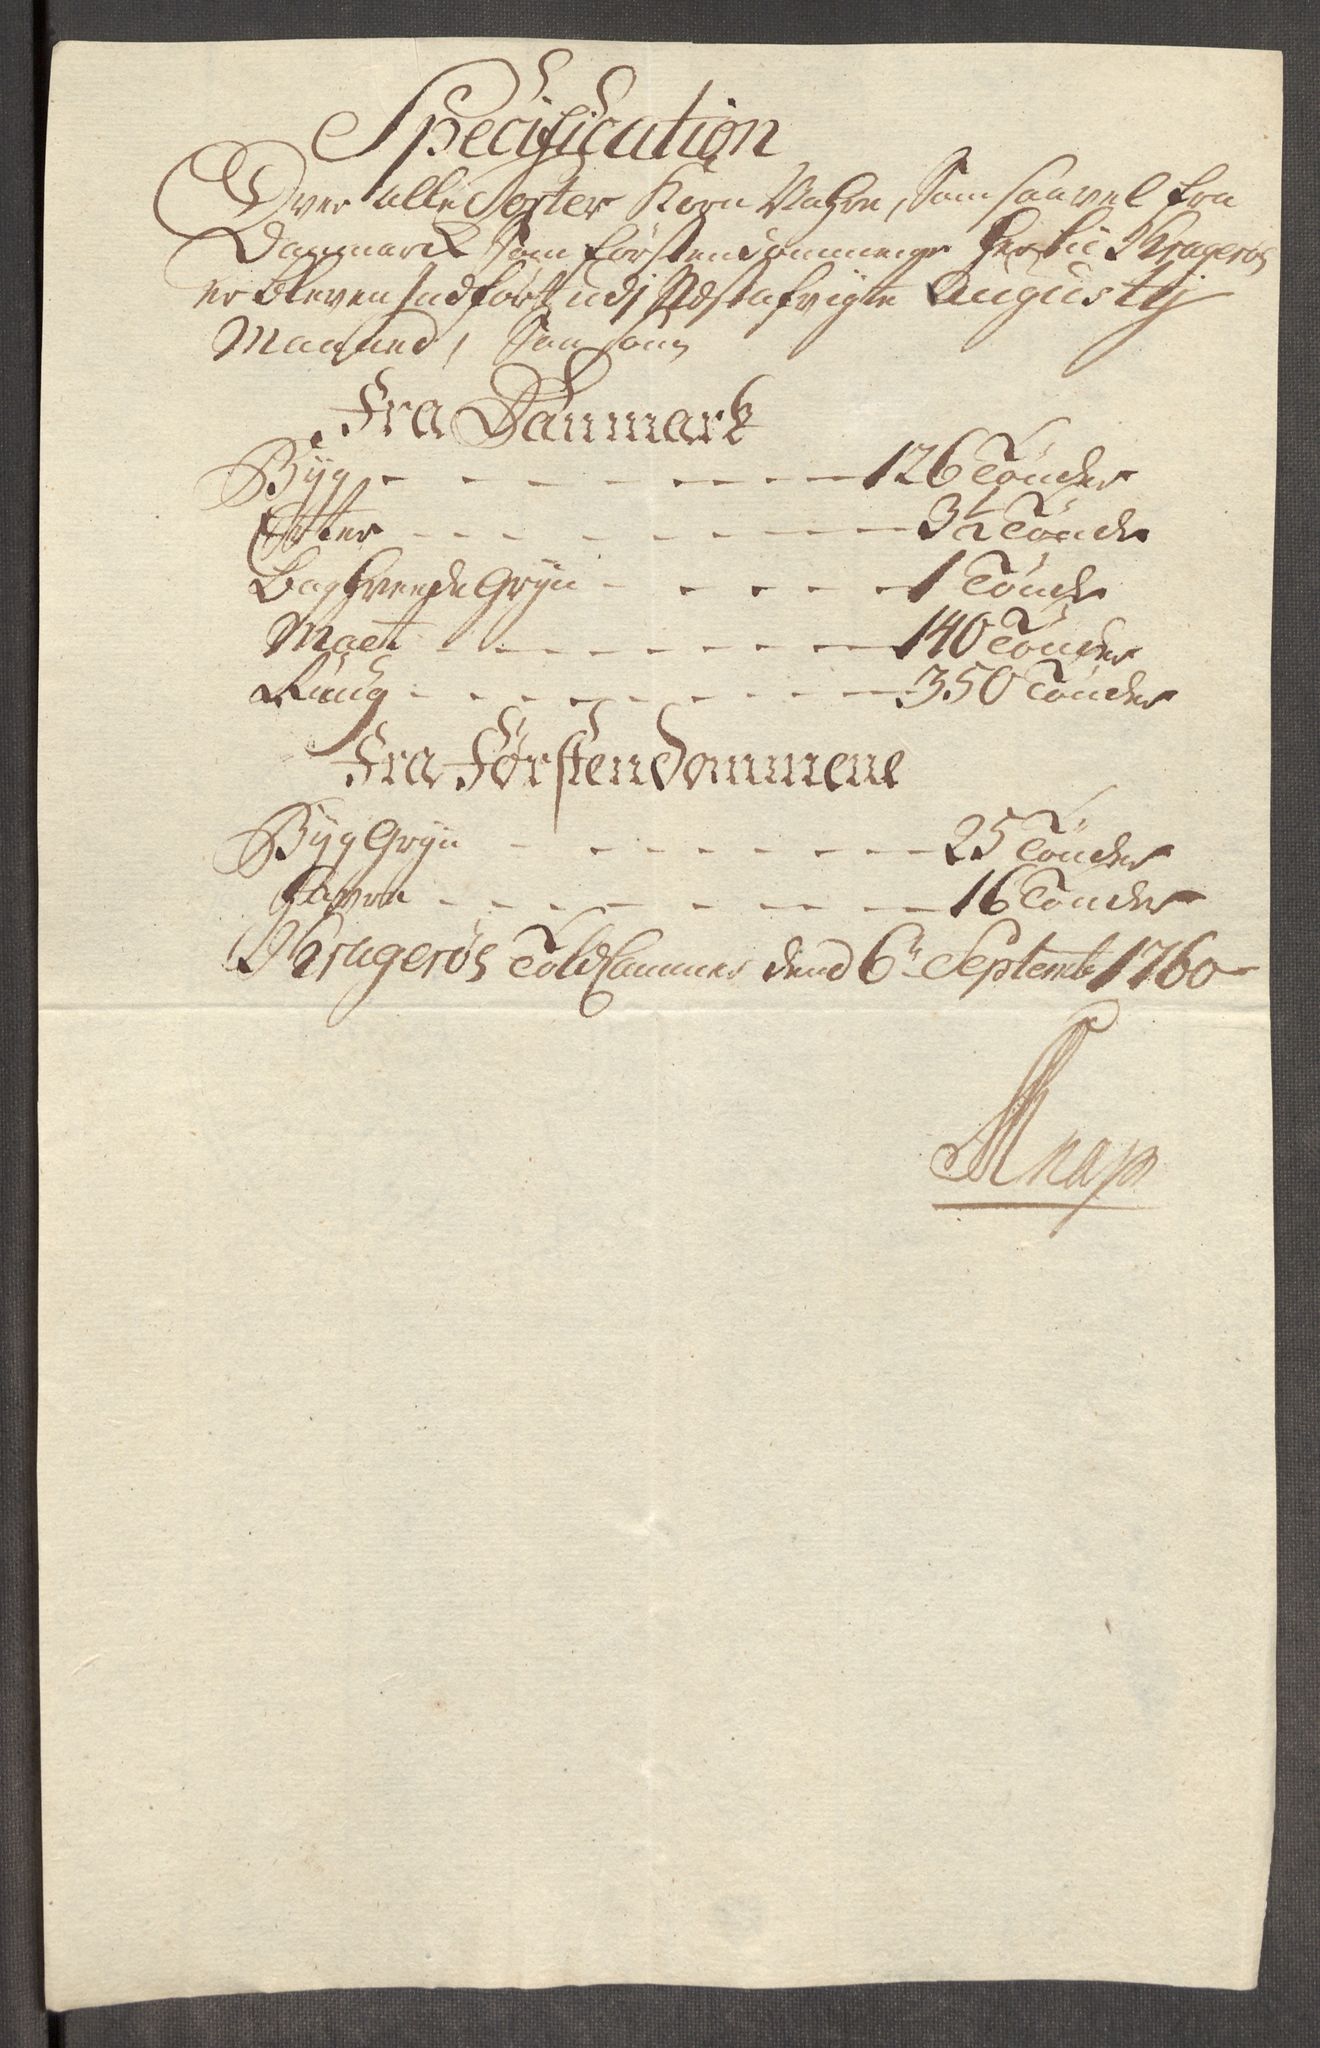 Specification
Over alle Sorter Korn Vahre, Som saavel fra
Danmarck Som Förstendommene her til Kragerøe
er bleven Indført udj Nestafvigte Augustij
Maaned, Saasom
Fra Danmark
Byg - - - - - - - - 126 Tönder
Erter - - - - - - - - 3½ Tönde
Boghveede Gryn - - - - - 1 Tönde
Malt - - - - - - - 140 Tönder
Rúúg - - - - - - - - 350 Tönder
Fra Førstendommene
Byg Gryn - - - - - - - 25 Tönder
Havre - - - - - - - - 16 Tönder
Kragerøe Told Cammer dend 6t Septemb 1760
Knap